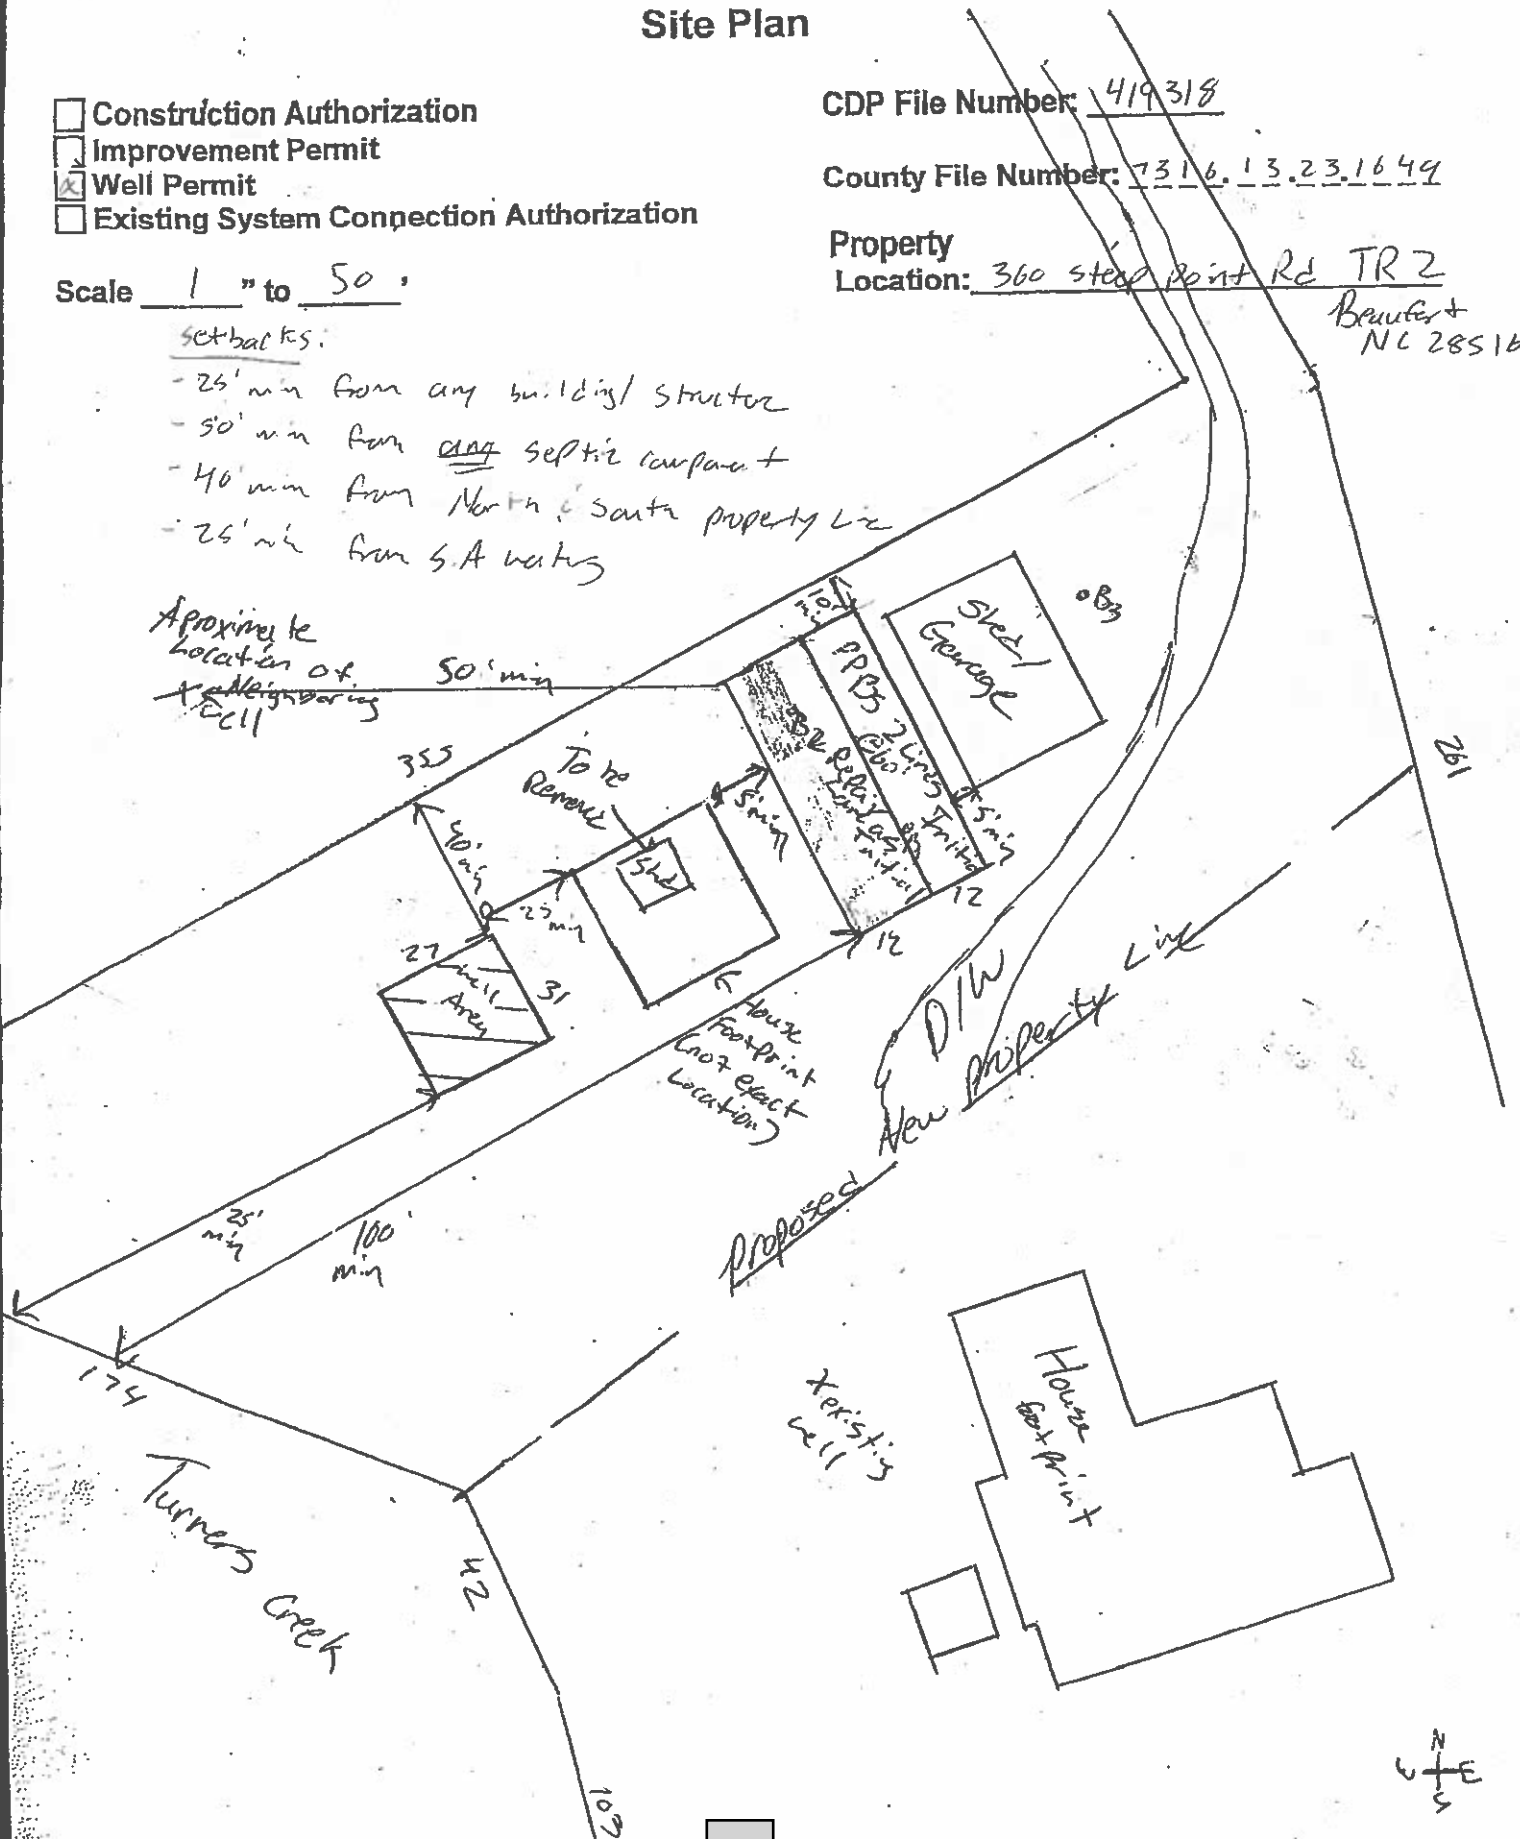 Site Plan
Construction Authorization
Improvement Permit
Well Permit
Existing System Connection Authorization
CDP File Number: 419318
County File Number: 7316.13.23.1649
Property
Location: 360 steep Point Rd TR 2
Beaufort
NC 28516
Scale 1 " to 50 '
setbacks:
- 25' min from any building/ structure
- 50' min from any septic component
- 40' min from North & South property Line
- 25' min from S.A waters
Aproximate
Location of
Neighboring
well
50' min
355
To be
Removed
Shed
40'
min
25
min
5'min
10'
min
PPBS 2 Lines
Initial
B2 Repair
B3
Shed/
Gearage
5'min
12
12
261
27
31
well
Area
House
Footprint
(not exact
Location)
D/W
Proposed New Property Line
25'
min
100'
min
174
Turners Creek
42
103
X existing
well
House
footprint
N
W E
S